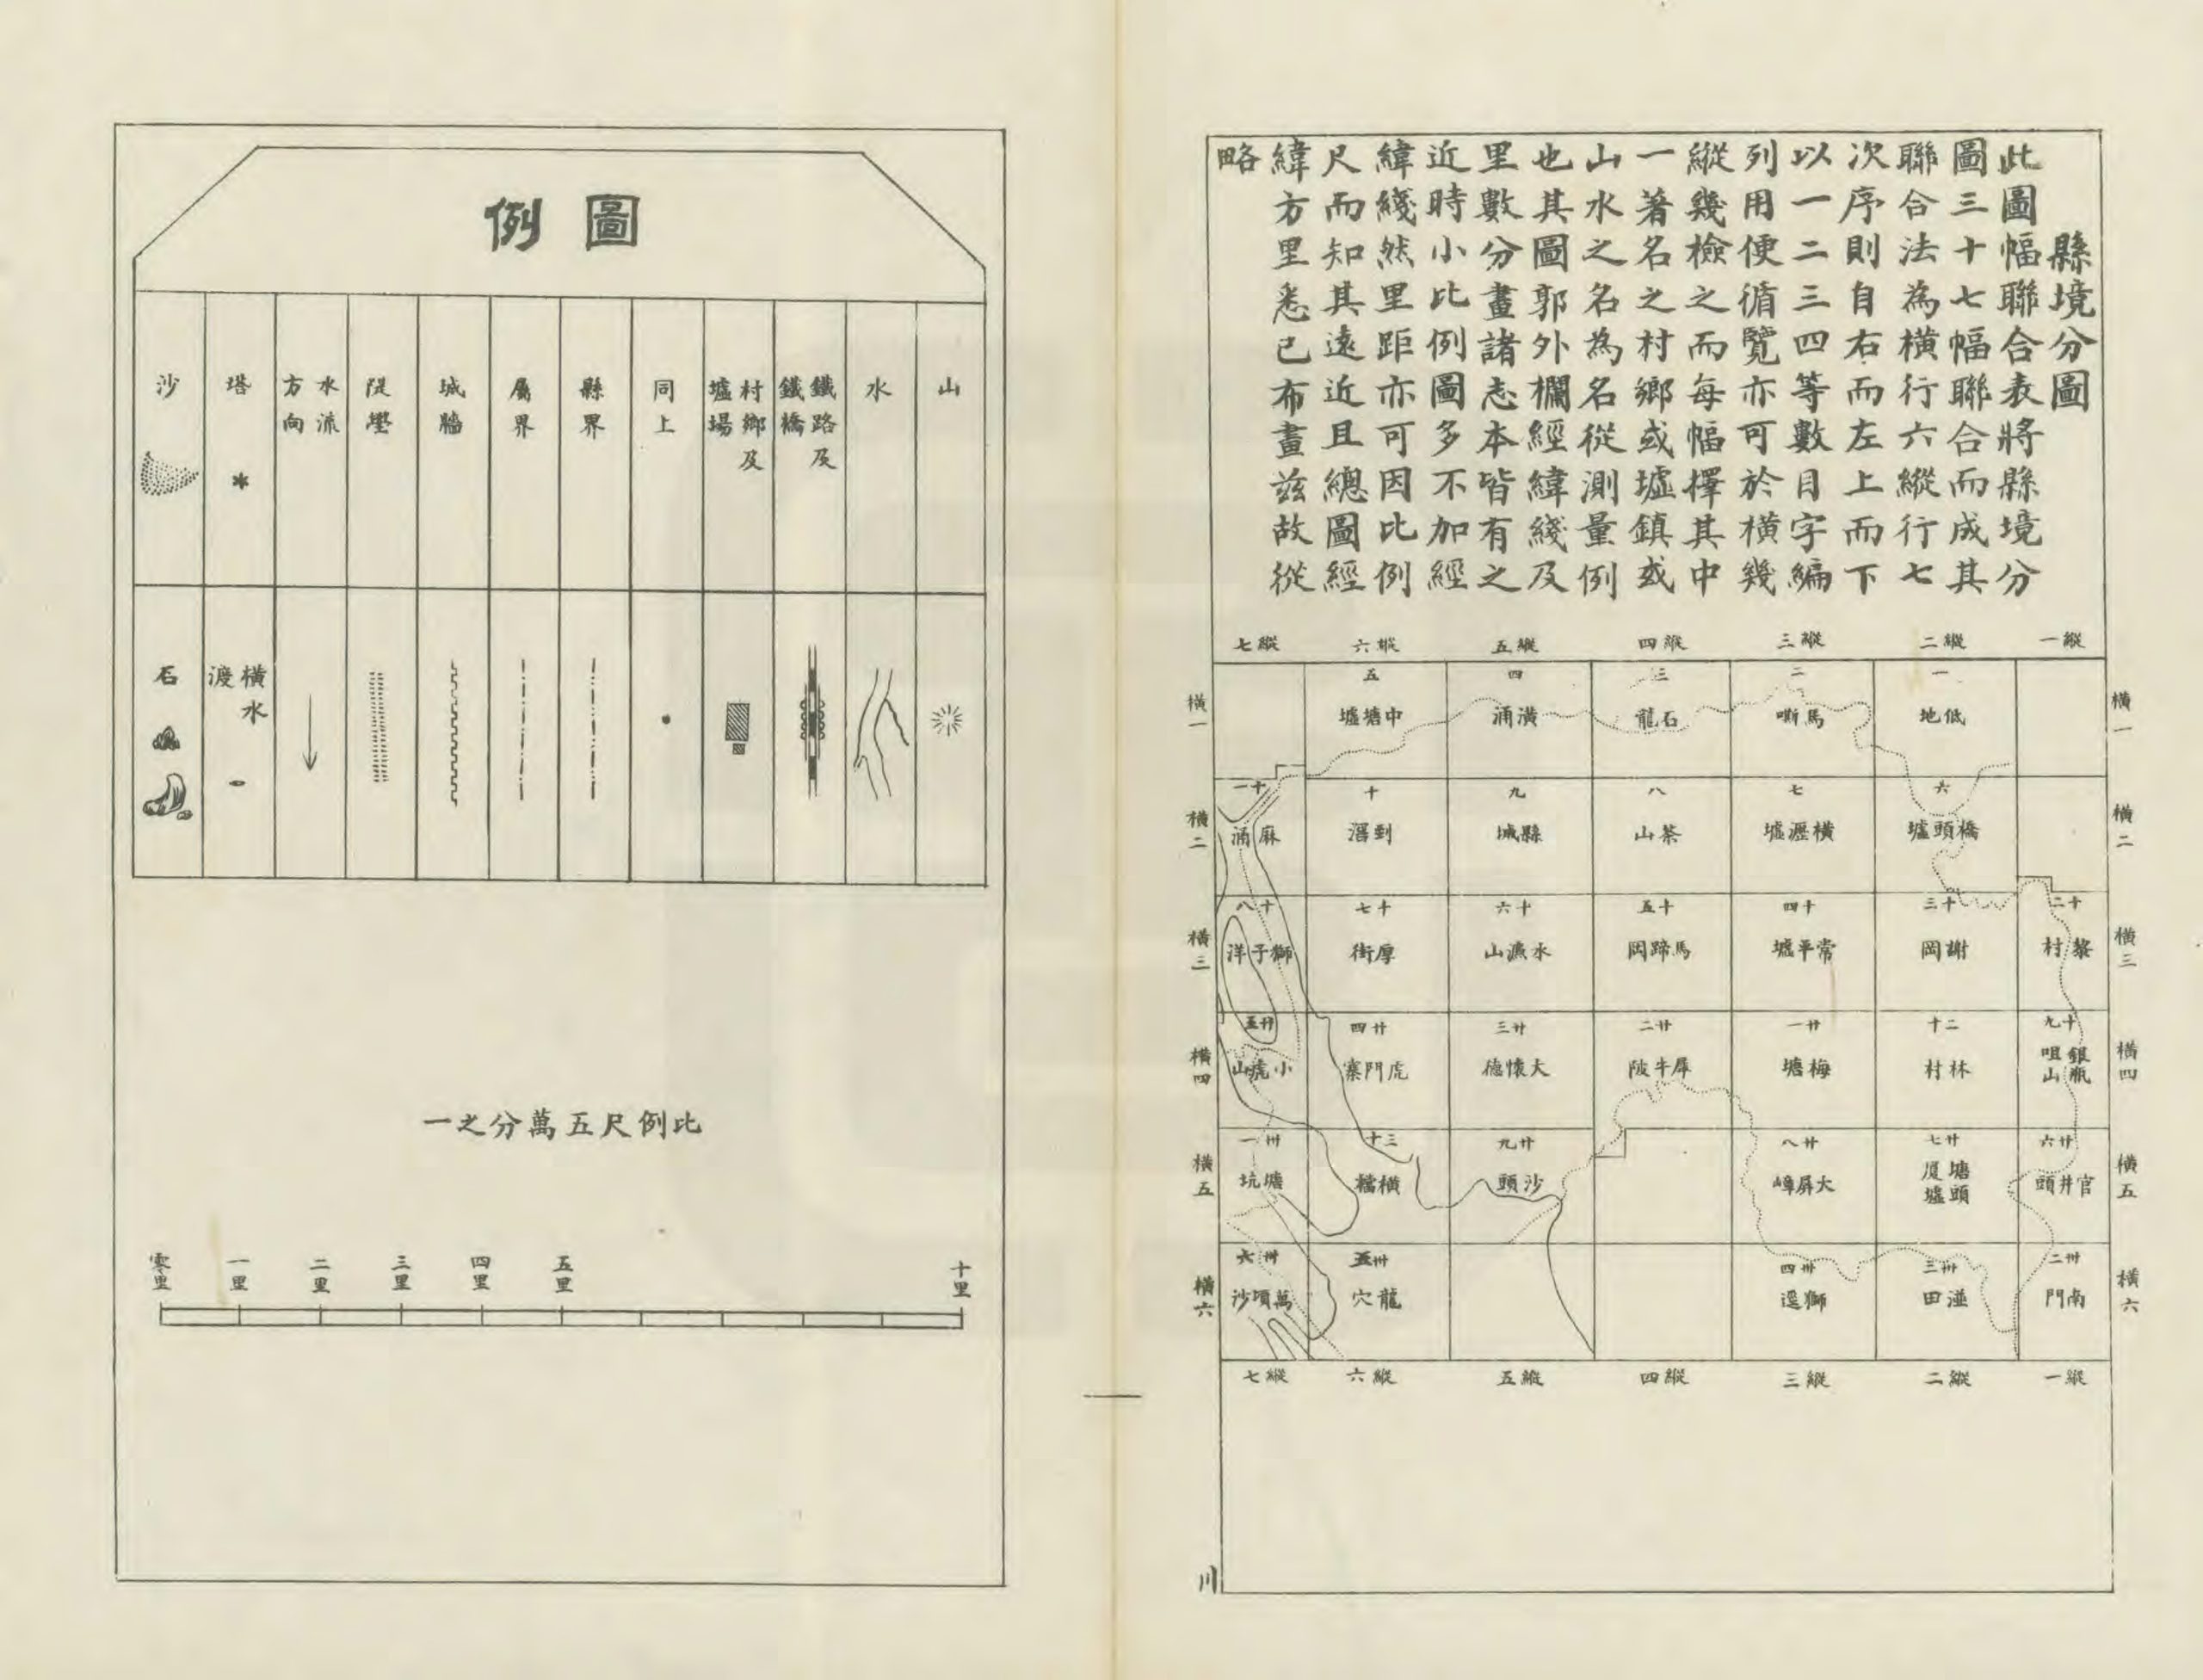 縣境分圖
此圖幅聯合表將縣境分
圖三十七幅聯合而成其
聯合法為橫行六縱行七
次序則自右而左上而下
以一二三四等數目字編
列用便循覽亦可於橫幾
縱幾檢之而每幅擇其中
一著名之村鄉或墟鎮或
山水之名為名從測量例
也其圖郭外欄經緯綫及
里數分畫諸志本皆有之
近時小比例圖多不加經
緯綫然里距亦可因比例
尺而知其遠近且總圖經
緯方里悉已布畫茲故從
略
縱一
縱二
縱三
縱四
縱五
縱六
縱七
橫一
一
低地
二
馬嘶
三
石龍
四
潢涌
五
中塘墟
橫一
橫二
六
橋頭墟
七
橫瀝墟
八
茶山
九
縣城
十
到滘
十一
麻涌
橫二
橫三
十二
黎村
十三
謝岡
十四
常平墟
十五
馬蹄岡
十六
水濂山
十七
厚街
十八
獅子洋
橫三
橫四
十九
銀瓶
咀山
二十
林村
廿一
梅塘
廿二
犀牛陂
廿三
大懷德
廿四
虎門寨
廿五
小虎山
橫四
橫五
廿六
官井頭
廿七
塘頭
厦墟
廿八
大屏嶂
廿九
沙頭
三十
橫檔
卅一
塘坑
橫五
橫六
卅二
南門
卅三
湴田
卅四
獅逕
卅五
龍穴
卅六
萬頃沙
橫六
縱一
縱二
縱三
縱四
縱五
縱六
縱七
圖例
山
水
鐵路及
鐵橋
村鄉及
墟場
同上
縣界
屬界
城牆
隄壆
水流
方向
塔
沙
橫水
渡
石
比例尺五萬分之一
零里
一里
二里
三里
四里
五里
十里